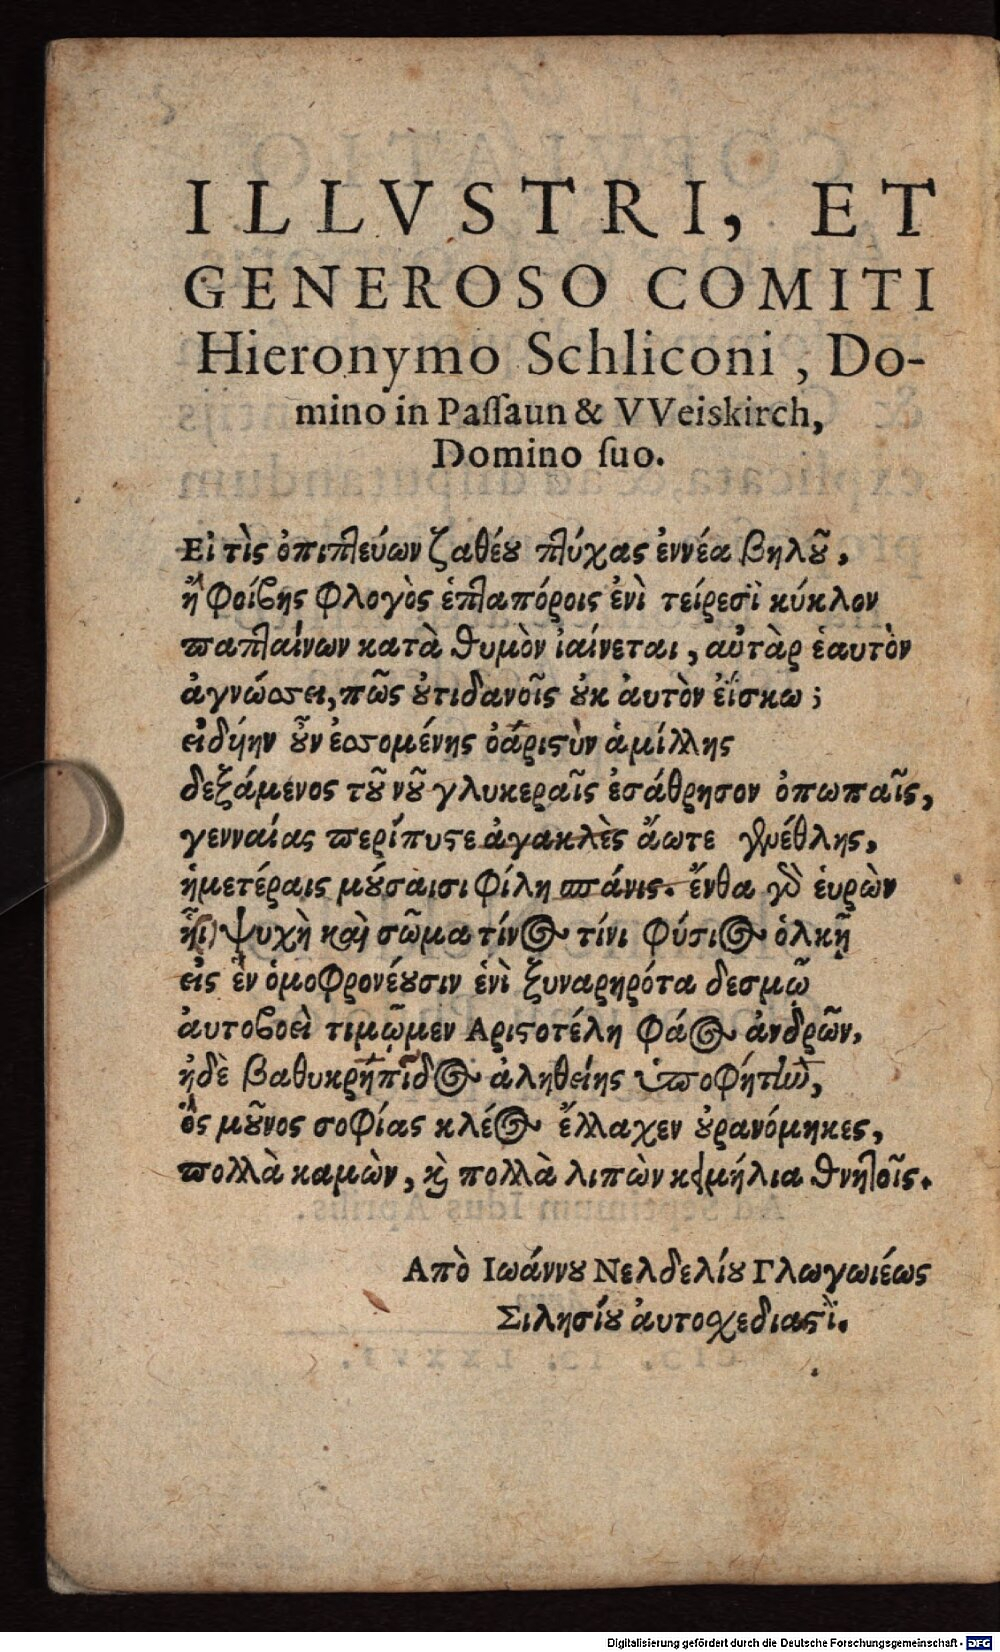 ILLVSTRI, ET
GENEROSO COMITI
Hieronymo Schliconi, Do-
mino in Paſſaun & VVeiskirch,
Domino ſuo.
Εἰ τὶς ὀπιπτεύων ζαθέου πτύχας ἐννέα βηλοῦ,
ἢ Φοίβης φλογὸς ἑπταπόροις ἐνὶ τείρεσϊ κύκλον
παπταίνων κατὰ θυμὸν ἰαίνεται, αὐτὰρ ἑαυτὸν
ἀγνώσσει, πῶς οὐτιδανοῖς οὐκ αὐτὸν ἐΐσκω;
οὖν ἐσσομένης ὀάριστὺν ἁμίλλης
δεξάμενος τοῦ νοῦ γλυκεραῖς ἐσάθρησον ὀπωπαῖς,
γενναίας περίπυστε ἀγακλὲς ἄωτε γενέθλης,
ἡμετέραις μούσαισι φίλη πάνις. ἔνθα γὸ ἑυρὼν
ψυχὴ καὶ σῶμα τίνος τίνι φύσιος ὁλκῇ
εἰς ἓν ὁμοφρονέουσιν ἑνὶ ξυναρηρότα δεσμῷ
ἀυτοβοεὶ τιμῷμεν Αριστοτέλη φάος ἀνδρῶν,
ἠδὲ βαθυκρήπιδος ἀληθείης ὑποφήτην,
ὃς μοῦνος σοφίας κλέος ἔλλαχεν οὐρανόμηκες,
πολλὰ καμὼν, καὶ πολλὰ λιπὼν κειμήλια θνητοῖς.
Απὸ Ιωάννου Νελδελίου Γλωγωιέως
Σιλησίου ἀυτοσχεδιαστὶ.
Digitalisierung gefördert durch die Deutsche Forschungsgemeinschaft - DFG